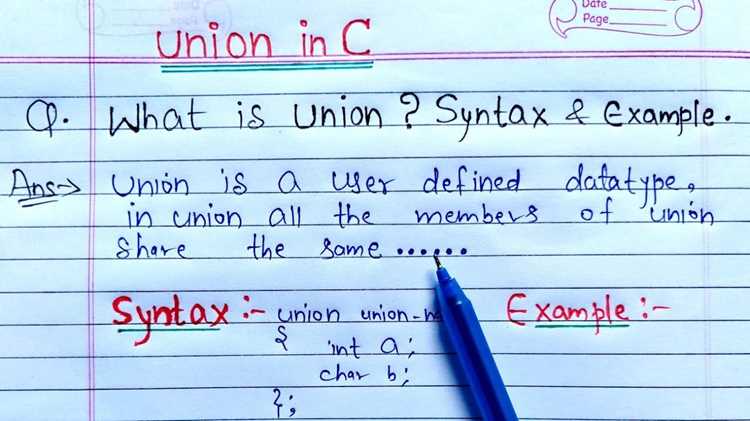 Date
Page
Union in C
Q. What is Union ? Syntax & Example.
Ans→ Union is a user defined datatype,
in union all the members of union
share the same ......
Syntax :- union union-
Example :-
{
int a;
char b;
};